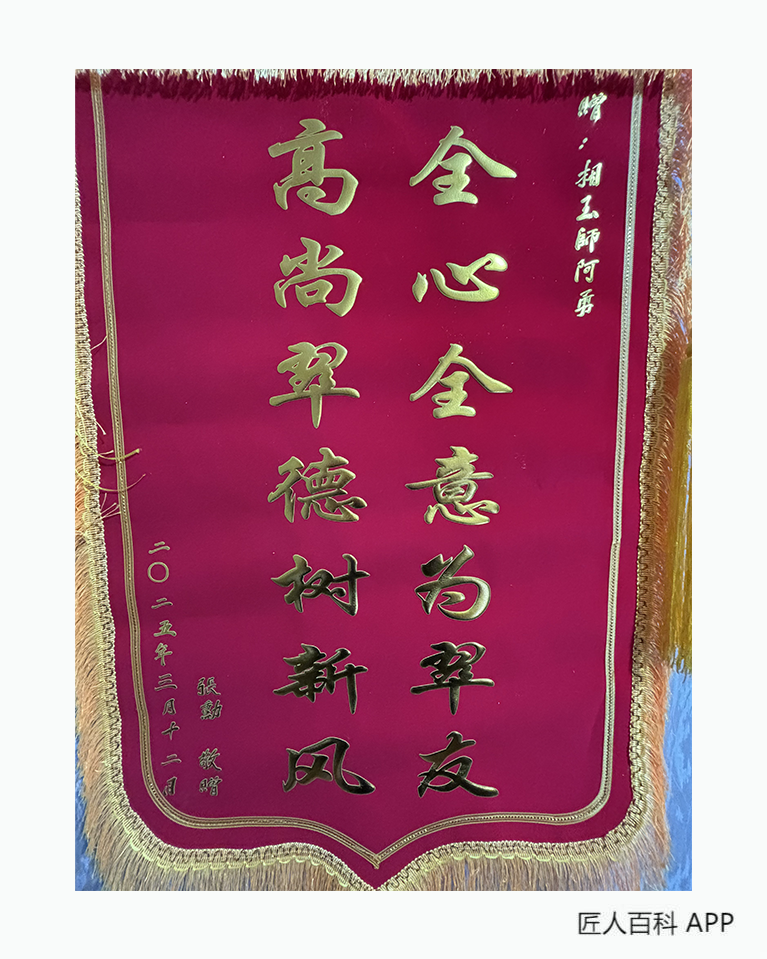 赠：相玉師阿勇
全心全意为翠友
高尚翠德树新风
張勳 敬赠
二〇二五年三月十二月
匠人百科 APP